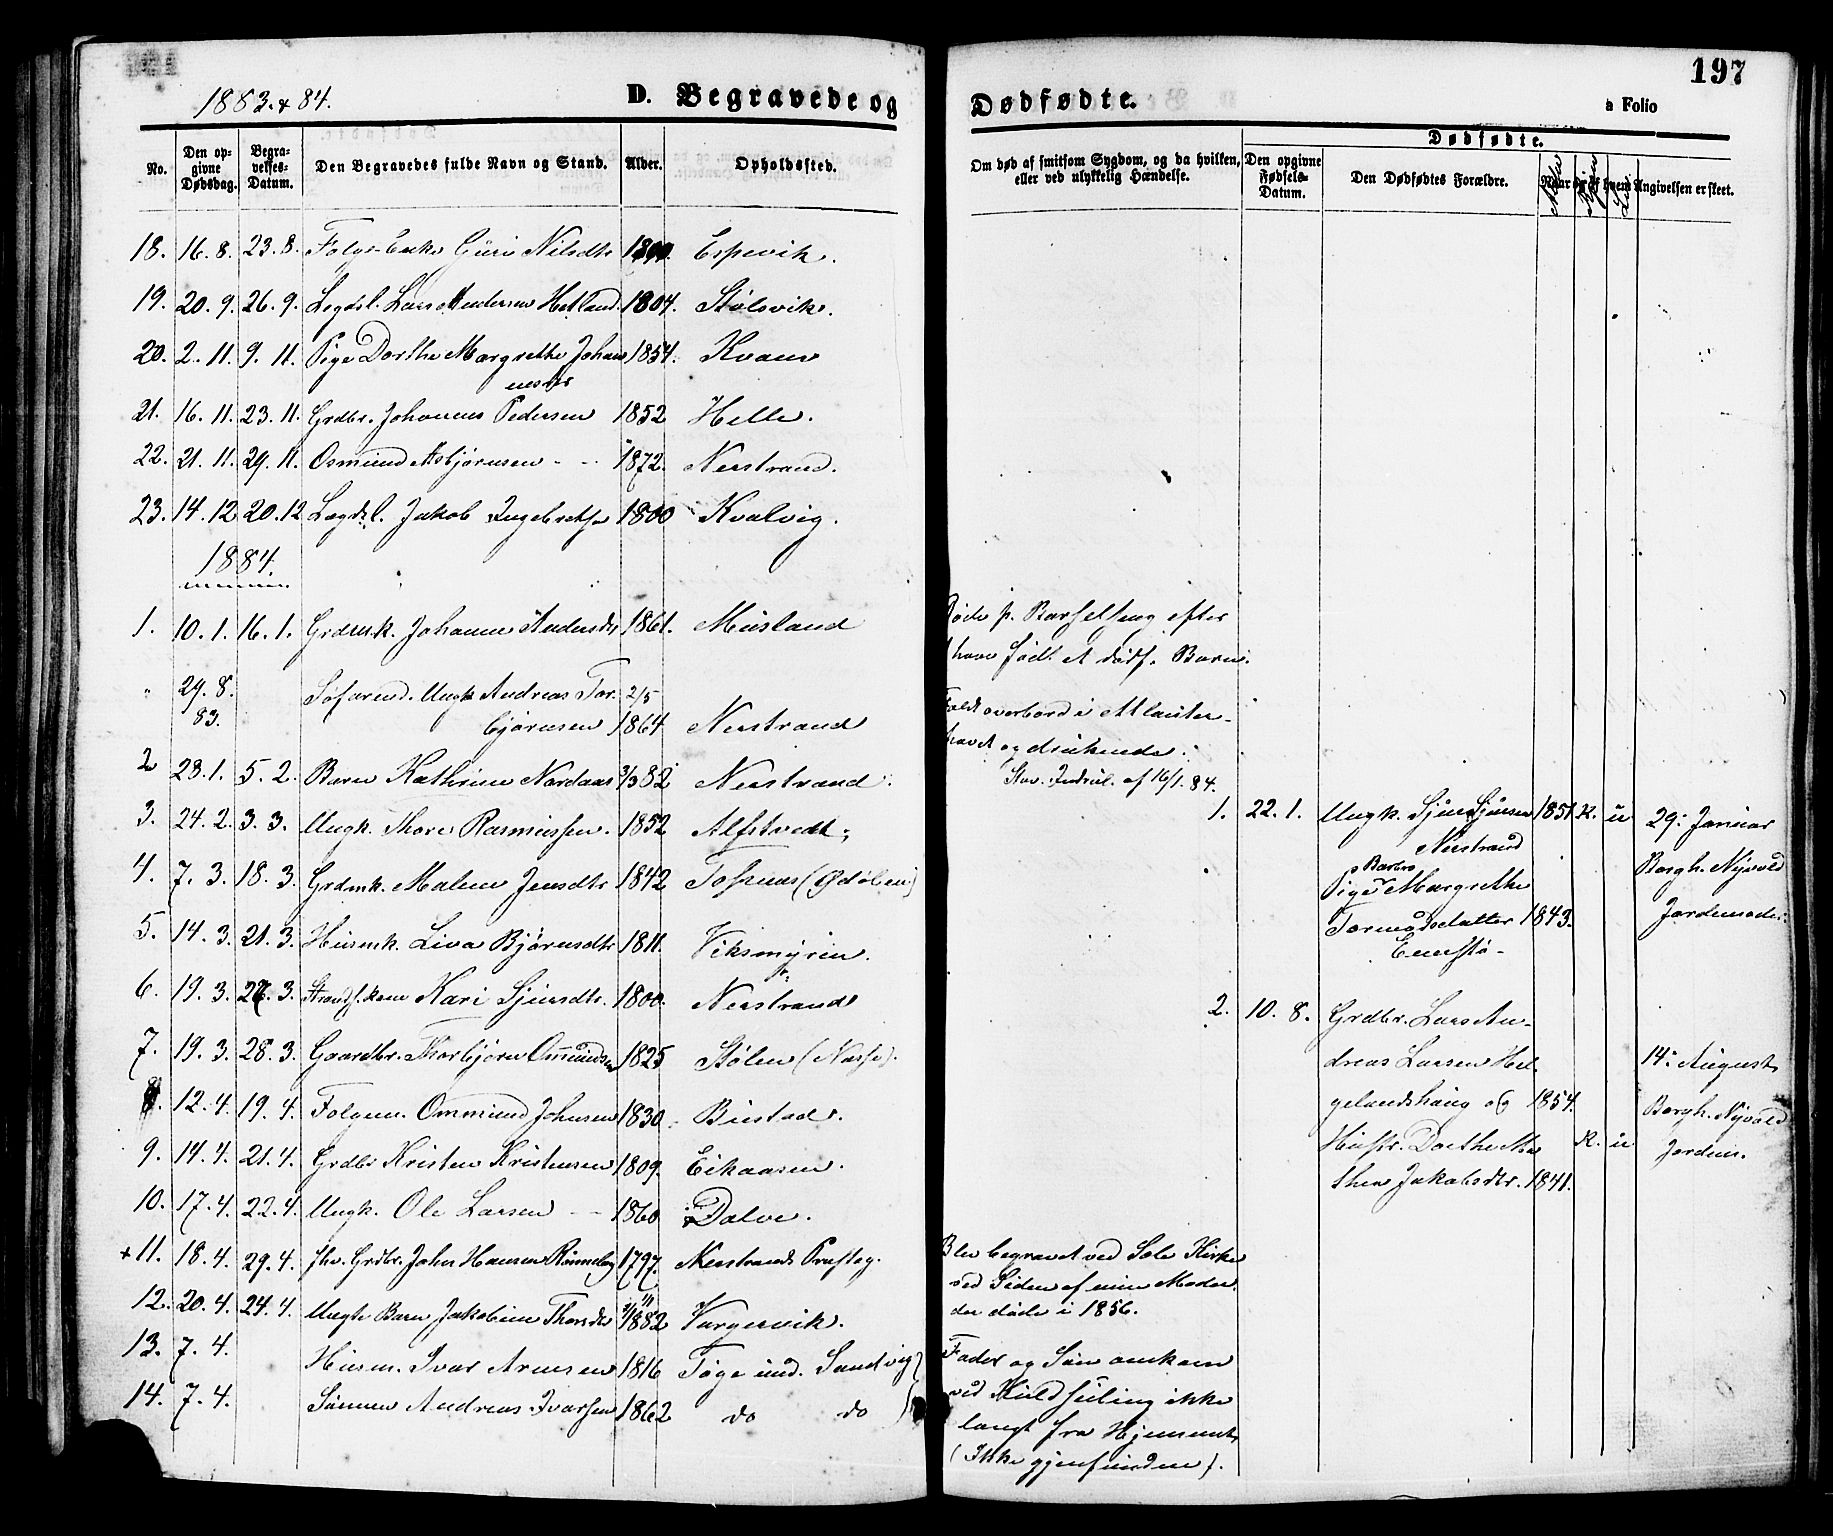 197
1883. & 84.
D. Begravede og Dødfødte.
a Folio
No.
Den opgivne Dødsdag.
Begravelses-Datum.
Den Begravedes fulde Navn og Stand.
Alder.
Opholdssted.
Om død af smitsom Sygdom, og da hvilken, eller ved ulykkelig Hændelse.
Dødfødte.
Den opgivne Fødsels-Datum.
Den Dødfødtes Forældre.
Naar og af hvem Angivelsen er skeet.
18. 16. 8. 23. 8. Folge-Enke Guri Nilsdtr Espevik.
19. 20. 9. 26. 9. Legdsl. Lars Andersen Hetland. 1804. Stølsvik.
20. 2. 11. 9. 11. Pige Dorthe Margrethe Johan 1854. Kvam
nesdtr
21. 16. 11. 23. 11. Grdbr. Johannes Pedersen 1852 Helle.
22. 21. 11. 29. 11. Osmund Asbjørnsen - - 1872. Nerstrand.
23. 14. 12 20. 12 Lægdsl. Jakob Ingebretsen 1800 Kvalvig.
1884.
1. 10. 1. 16. 1. Grdmk. Johanne Andersdtr 1861. Musland
Døde p. Barselseng efter
at have født et dødf. Barn.
" 29. 8. Søfarend. Ungk Andreas Tor- 2/5
83. bjørnsen 1864 Nerstrand
Faldt overbord i Atlanter-
havet og druknede.
Stav. Indrul. af 16/1. 84.
2 28. 1. 5. 2. Barn Kathrine Nordaas 3/3 82 Nerstrand.
3. 24. 2. 3. 3. Ungk. Thore Rasmussen. 1852 Alfstvedt.
4. 7. 3. 18. 3. Grdmk. Malene Jensdtr 1842 Tosnes (Ødølen)
5. 14. 3. 21. 3. Husmk. Liva Bjørnsdtr 1811. Viksmyren.
6. 19. 3. 28. 3. Strands. kone Kari Sjursdtr. 1800. Nerstrand
7. 19. 3. 28. 3. Gaardbr. Thorbjørn Omundsen 1825 Stølen ( ).
8. 12. 4. 19. 4. Folgem. Ommund Johnsen 1830. Bustad.
9. 14. 4. 21. 4. Grdbr Kristen Kristensen 1809. Eikaasen.
10. 17. 4. 22. 4. Ungk. Ole Larsen - - 1860 Dalve.
+ 11. 18. 4. 29. 4. Fhv. Grdbr. John Hansen 1797. Nerstrands Præsteg.
Blev begravet ved Sole Kirke
ved Siden af min Moder,
der døde i 1856.
12. 20. 4. 24. 4. Uægte Barn Jakobine Thorsdtr 1882 Vargervik.
13. 7. 4. Husm. Ivar Arnesen 1816 Tøge und. Sandvig
14. 7. 4. Sønnen Andreas Ivarsen 1862 do do
Fader og Søn omkom
ved Kuldseiling ikke
langt fra Hjemmet,
(Ikke gjenfundne).
1. 22. 1. Ungk. Sjur Sjursen 1851 K. u 29. Januar
Nerstrand
Barbro
Pige Margrethe
Tormodsdatter 1843.
Borgh. Nyvold
Jordemoder.
2. 10. 8. Grdbr. Lars An-
dreas Larsen Hel-
gelandshaug og 1854.
Hustr. Dorthe Ma
thea Jakobsdtr. 1841.
K. u
14. August
Borgh. Nyvold
Jordem.